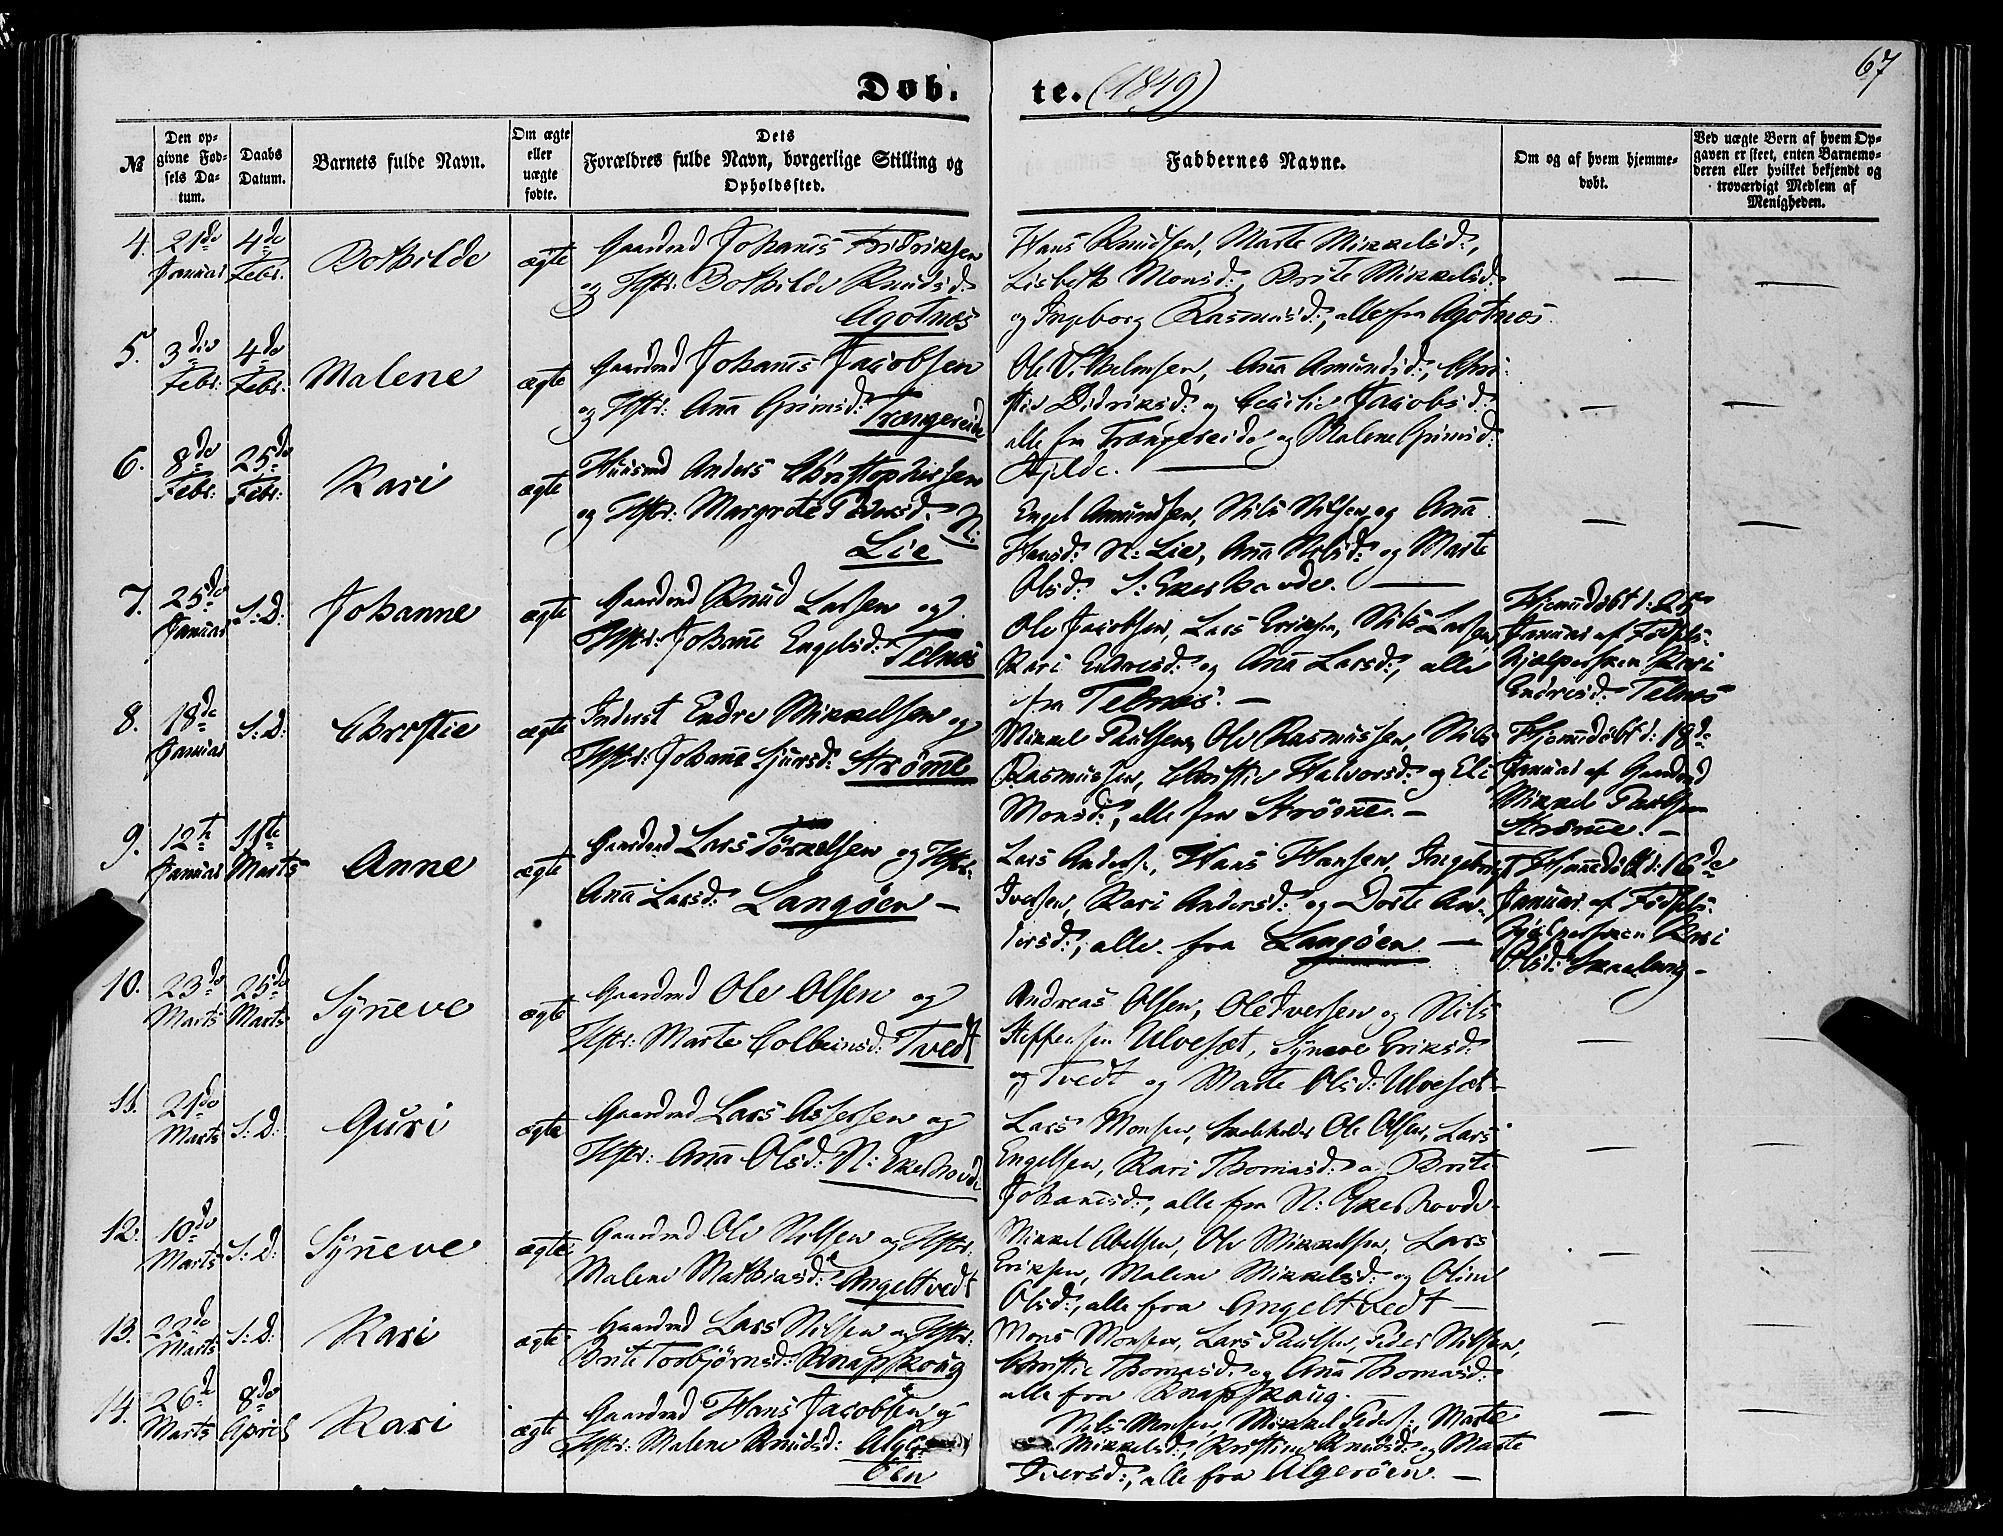 67
Døb. te. (1849)
№
Den opgivne Fødsels Datum.
Daabs Datum.
Barnets fulde Navn.
Om ægte eller uægte fødte.
Dets Forældres fulde Navn, borgerlige Stilling og Opholdssted.
Faddernes Navne.
Om og af hvem hjemmedøbt.
Ved uægte Børn af hvem Opgaven er skeet, enten Barnemoderen eller hvilket bekjendt og troværdigt Medlem af Menigheden.
4. 21de Januar 4de Febr: Bothilde ægte
Gaardmd Johans Fridriksen
og Hstr: Bothilde Knudsd:
Agotnæs
Hans Knudsen, Marte Mikkelsd:,
Lisbeth Monsd:, Brite Mikkelsd:
og Ingeborg Rasmusd:, alle fra Agotnæs
5. 3die Febr: 4de Febr: Malene ægte
Gaardmd Johans Jacobsen
og Hstr: Ana Grimsd: Trængereide
Ole Vilhelmsen, Ana Amundsd:, Chri-
stie Didriksd: og Cecilie Jacobsd:
alle fra Trængereide og Malene Grimsd:
6. 8de Febr: 25de Febr: Kari ægte
Huusmd Anders Christophersen
og Hstr: Margrete Pedersd: N:
Lie
Engel Amundsen, Nils Nilsen og Ana
Hansd: N: Lie, Ana Nilsd: og Marte
Olsd: S: Ekerhovde.
7. 25de Januar S: D: Johanne ægte
Gaardmd Knud Larsen og
Hstr: Johane Engelsd: Telnæs
Ole Jacobsen, Lars Eriksen, Nils Larsen,
Kari Endresd: og Ana Larsd:, alle
fra Telnæs.
Hjemmedøbt d: 25
Januar af Fødsels-
hjælpersken Kari
Endresd: Telnæs
8. 18de Januar S: D: Christie ægte
Inderst Endre Mikkelsen og
Hstr: Johane Sjursd: Strømme
Mikkel Paulsen, Ole Rasmussen, Nils
Rasmussen, Christie Halvorsd: og Eli
Monsd:, alle fra Strømme.
Hjemmedøbt d: 18de
Januar af Gaardmd
Mikkel Paulsen
Strømme.
9. 12te Januar 11te Marts Anne ægte
Gaardmd Lars Tørkelsen og Hstr:
Ana Larsd: Langøen
Lars Anders., Hans Hansen, Ingebrigt
Iversen, Kari Andersd: og Dorte An-
dersd:, alle fra Langøen
Hjemmedøbt d: 16de
Januar af Fødsels-
hjælpersken Kari
Olsd: Skaalevig
10. 23de Marts 25de Marts Syneve ægte
Gaardmd Ole Olsen og
Hstr: Marte Colbeinsd: Tvedt
Andreas Olsen, Ole Iversen og Nils
Steffensen Ulvesæt, Syneve Eriksd:
og Tvedt og Marte Olsd: Ulvesæt
11. 21de Marts S: D: Guri ægte
Gaardmd Lars Assersen og
Hstr: Ana Olsd: N: Ekerhovde
Lars Monsen, Ole Olsen, Lars
Engelsen, Kari Thomasd: og Brite
Johanesd:, alle fra N: Ekerhovde
12. 10de Marts S: D: Syneve ægte
Gaardmd Ole Nilsen og Hstr:
Malene Mathiasd: Angeltvedt
Mikkel Abelsen, Ole Mikkelsen, Lars
Eriksen, Malene Mikkelsd: og Oline
Olsd:, alle fra Angeltvedt
13. 22de Marts S: D: Kari ægte
Gaardmd Lars Nilsen og Hstr:
Brite Torbjørnsd: Knapskoug
Mons Monsen, Lars Paulsen, Peder Nilsen,
Christie Thomasd: og Ana Thomasd:
alle fra Knapskoug.
14. 26de Marts 8de April Kari ægte
Gaardmd Hans Jacobsen og
Hstr: Malene Knudsd: Alge-
öen
Nils Monsen, Mikkel Peders., Marte
Mikkelsd:, Kristine Knudsd: og Marte
Iversd:, alle fra Algerøen.